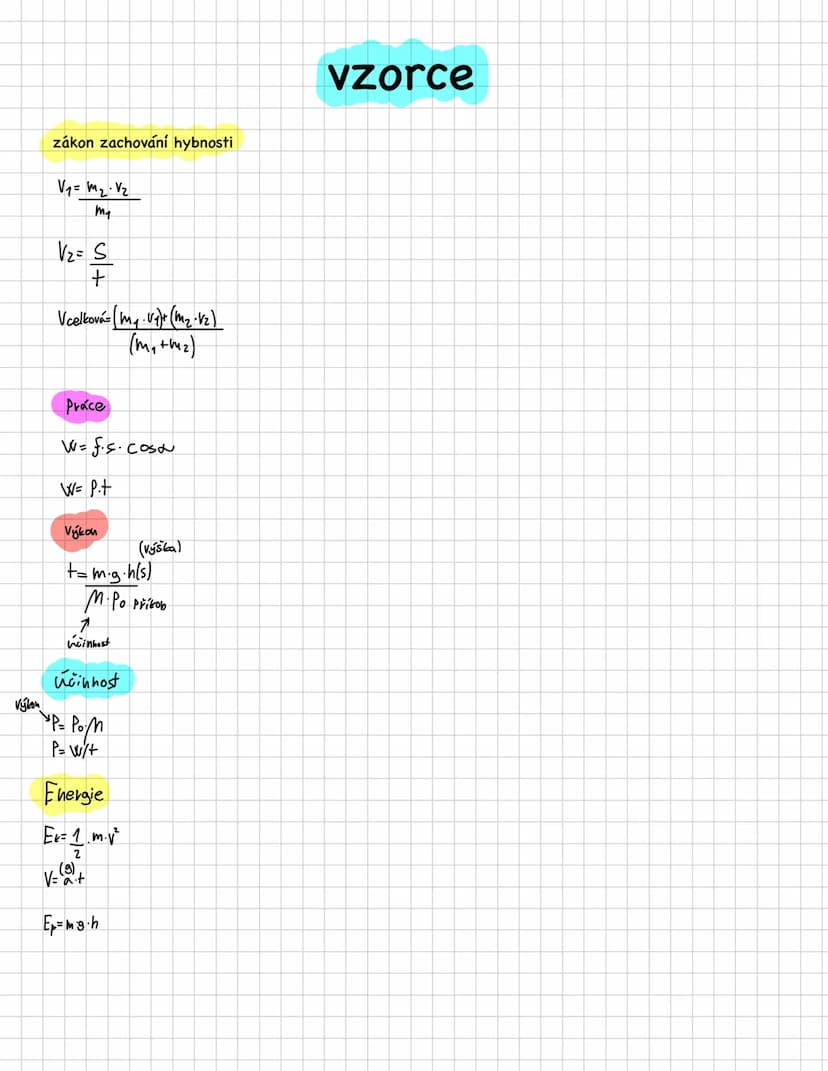 vzorce
zákon zachování hybnosti
V₁= m₂·v₂
m₁
V₂= s
t
Vcelková=(m₁·v₁)+(m₂·v₂)
(m₁+m₂)
práce
W= f·s·cosα
W= P·t
Výkon
(výška)
t= m·g·h(s)
M·P₀ příkon
účinnost
účinnost
výkon
P= P₀·M
P= W/t
Energie
Eₖ= 1 ·m·v²
2
(g)
V= a·t
Eₚ=m·g·h